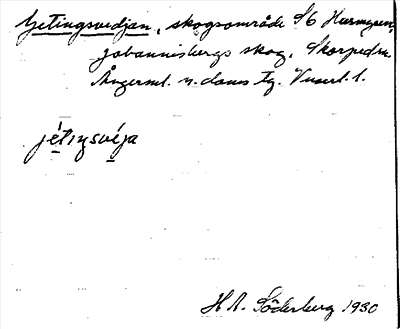 Getingsvedjan, skogsområde SO Harmyran,
Johannisbergs skog, Skorped sn.
Ångerml. n. doms tg. Vnorrl. l.
jétıŋsvéja
H A. Söderberg 1930